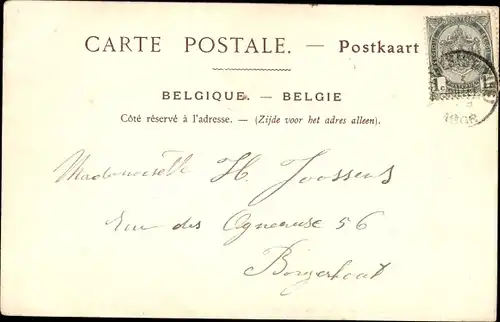 CARTE POSTALE. — Postkaart
BELGIQUE. — BELGIE
Côté réservé à l'adresse. — (Zijde voor het adres alleen).
1
1908
Mademoiselle H. Joossens
Rue des Ogneause 56
Borgerhout